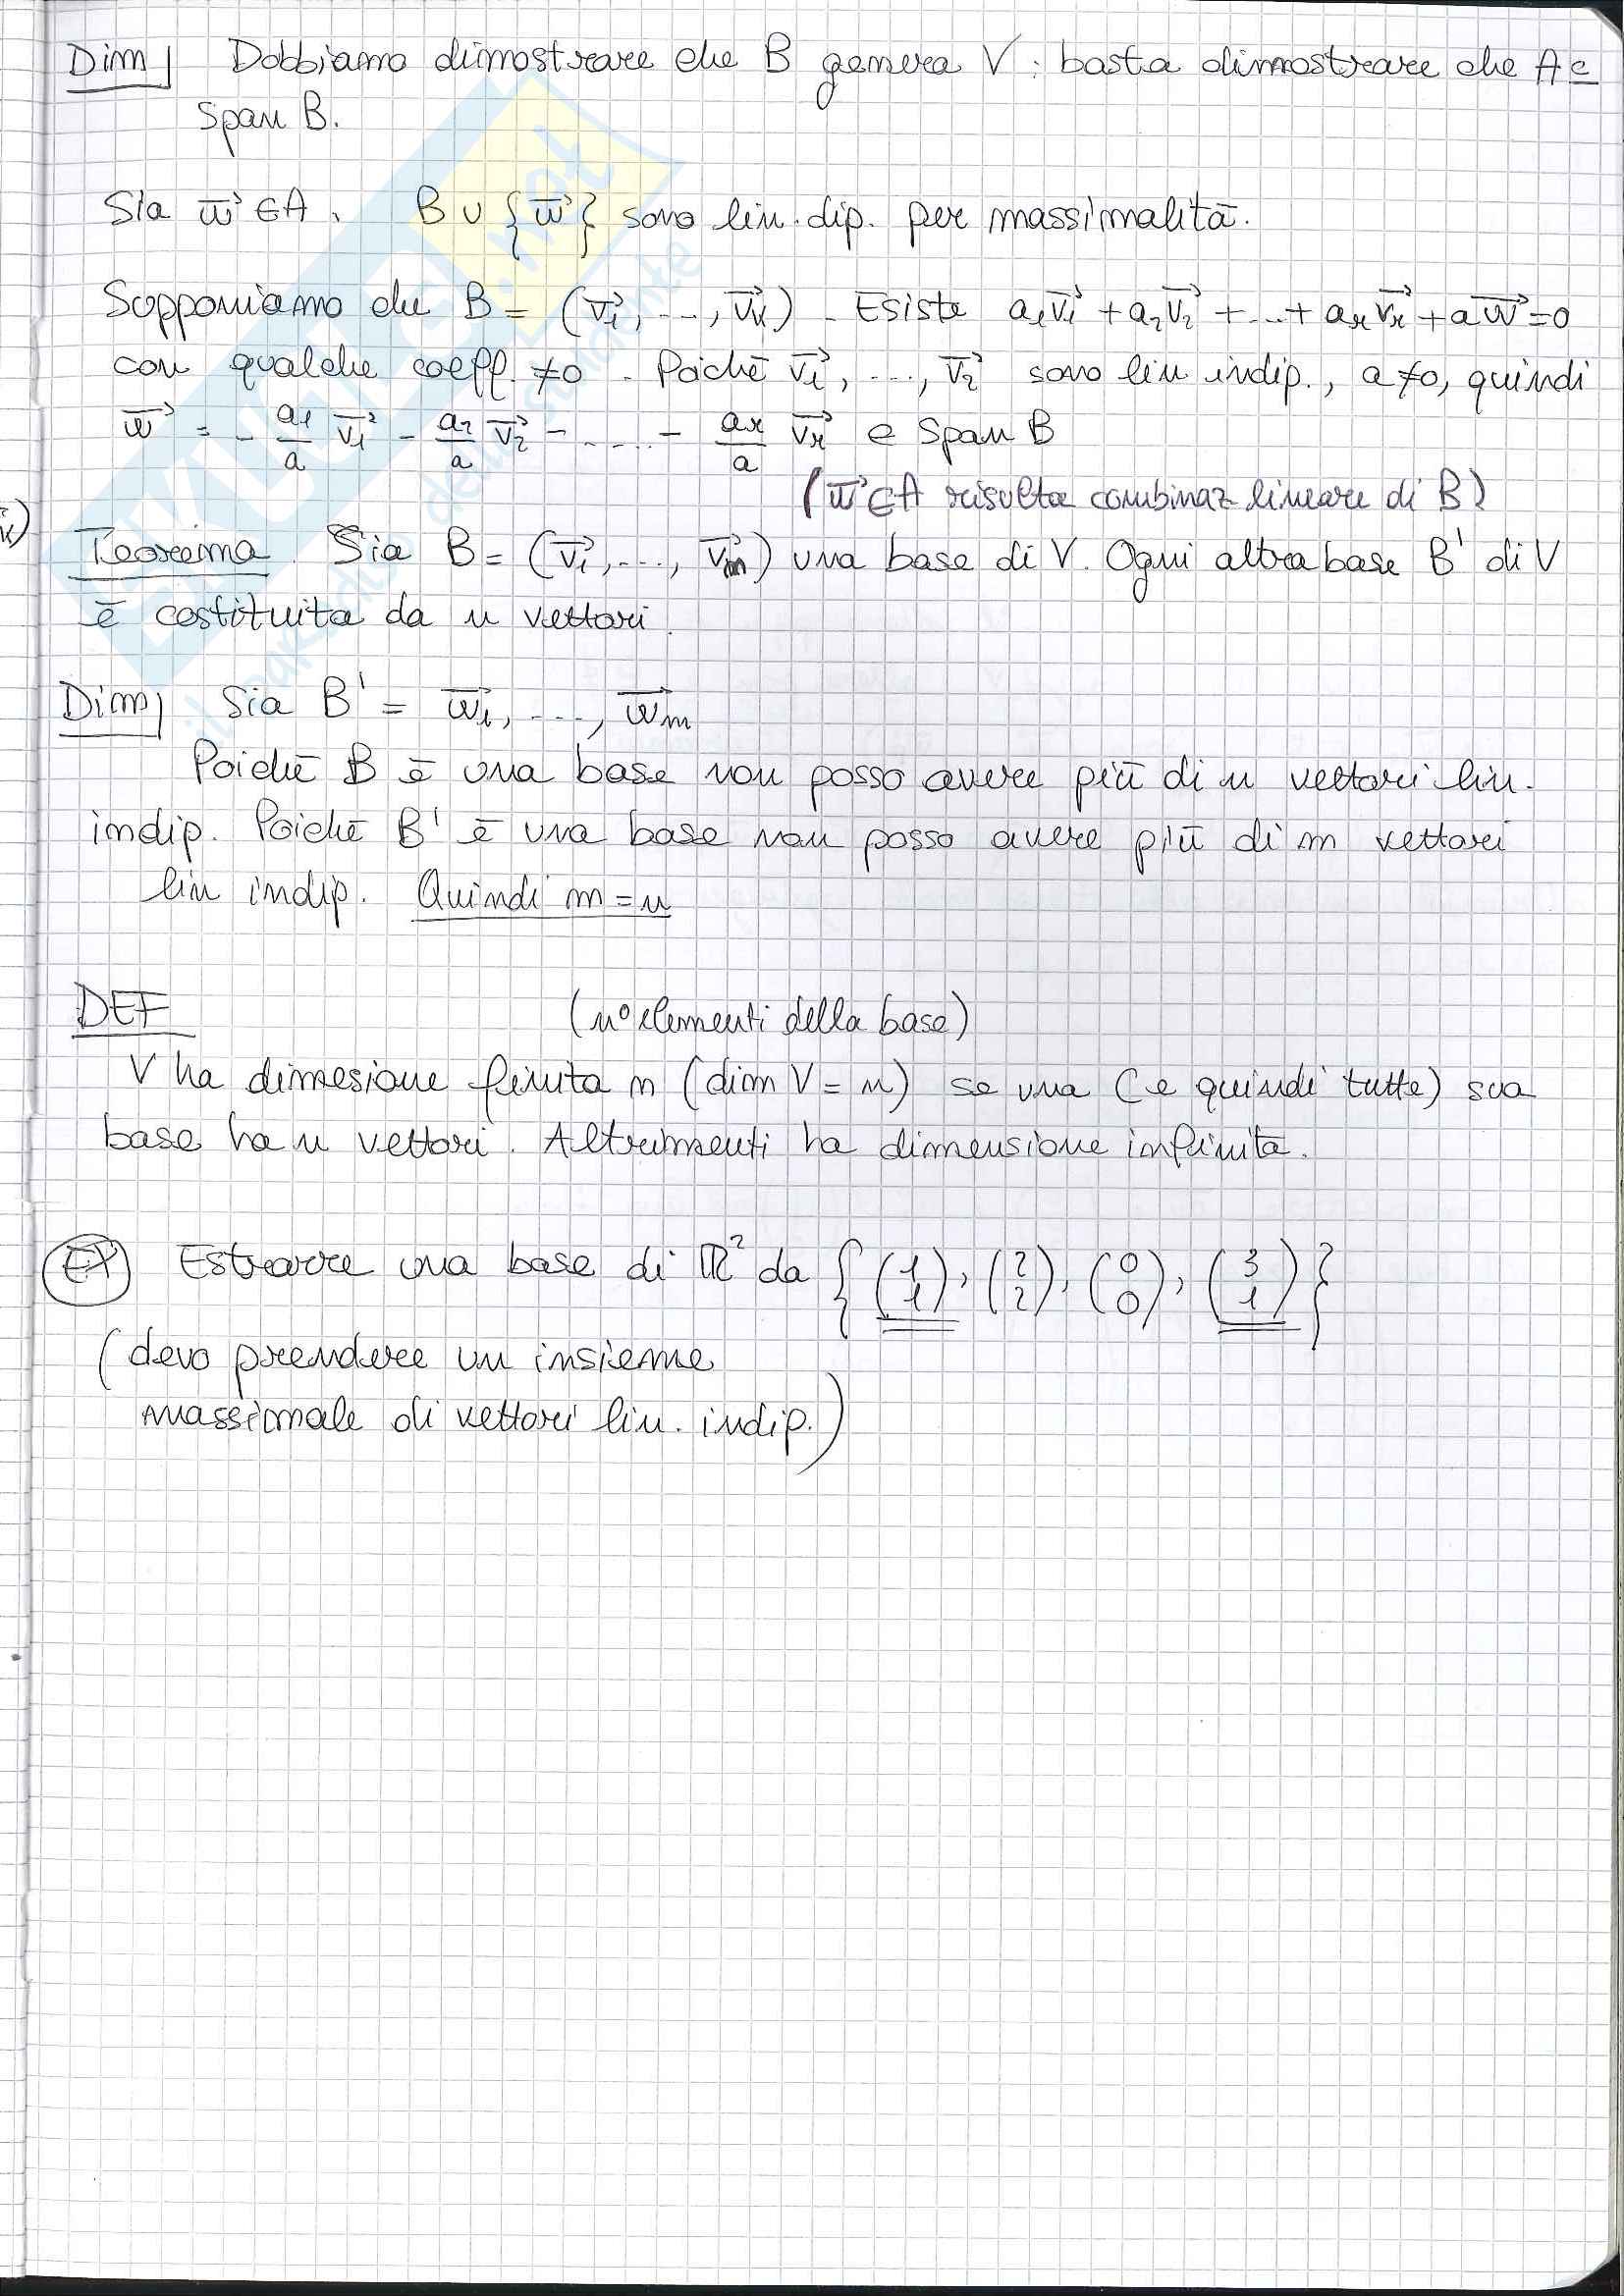 Dim Dobbiamo dimostrare che B genera V: basta dimostrare che A ⊂
Span B.
Sia w⃗ ∈ A. B ∪ {w⃗} sono lin. dip. per massimalità.
Supponiamo che B = (v⃗₁, ..., v⃗ₖ). Esiste a₁v⃗₁ + a₂v⃗₂ + ... + aₖv⃗ₖ + aw⃗ = 0
con qualche coeff. ≠ 0. Poiché v⃗₁, ..., v⃗₂ sono lin indip., a ≠ 0, quindi
w⃗ = - a₁/a v⃗₁ - a₂/a v⃗₂ - ..... - aₖ/a v⃗ₖ ∈ Span B
(w⃗ ∈ A risulta combinaz lineare di B)
Teorema. Sia B = (v⃗₁, ..., v⃗ₙ) una base di V. Ogni altra base B' di V
è costituita da n vettori.
Dim Sia B' = w⃗₁, ..., w⃗ₘ
Poiché B è una base non posso avere più di n vettori lin.
indip. Poiché B' è una base non posso avere più di m vettori
lin indip. Quindi m = n
DEF
(n° elementi della base)
V ha dimesione finita n (dim V = n) se una (e quindi tutte) sua
base ha n vettori. Altrimenti ha dimensione infinita.
EX Estrarre una base di ℝ² da {(1 1), (2 2), (0 0), (3 1)}
(devo prendere un insieme
massimale di vettori lin. indip.)